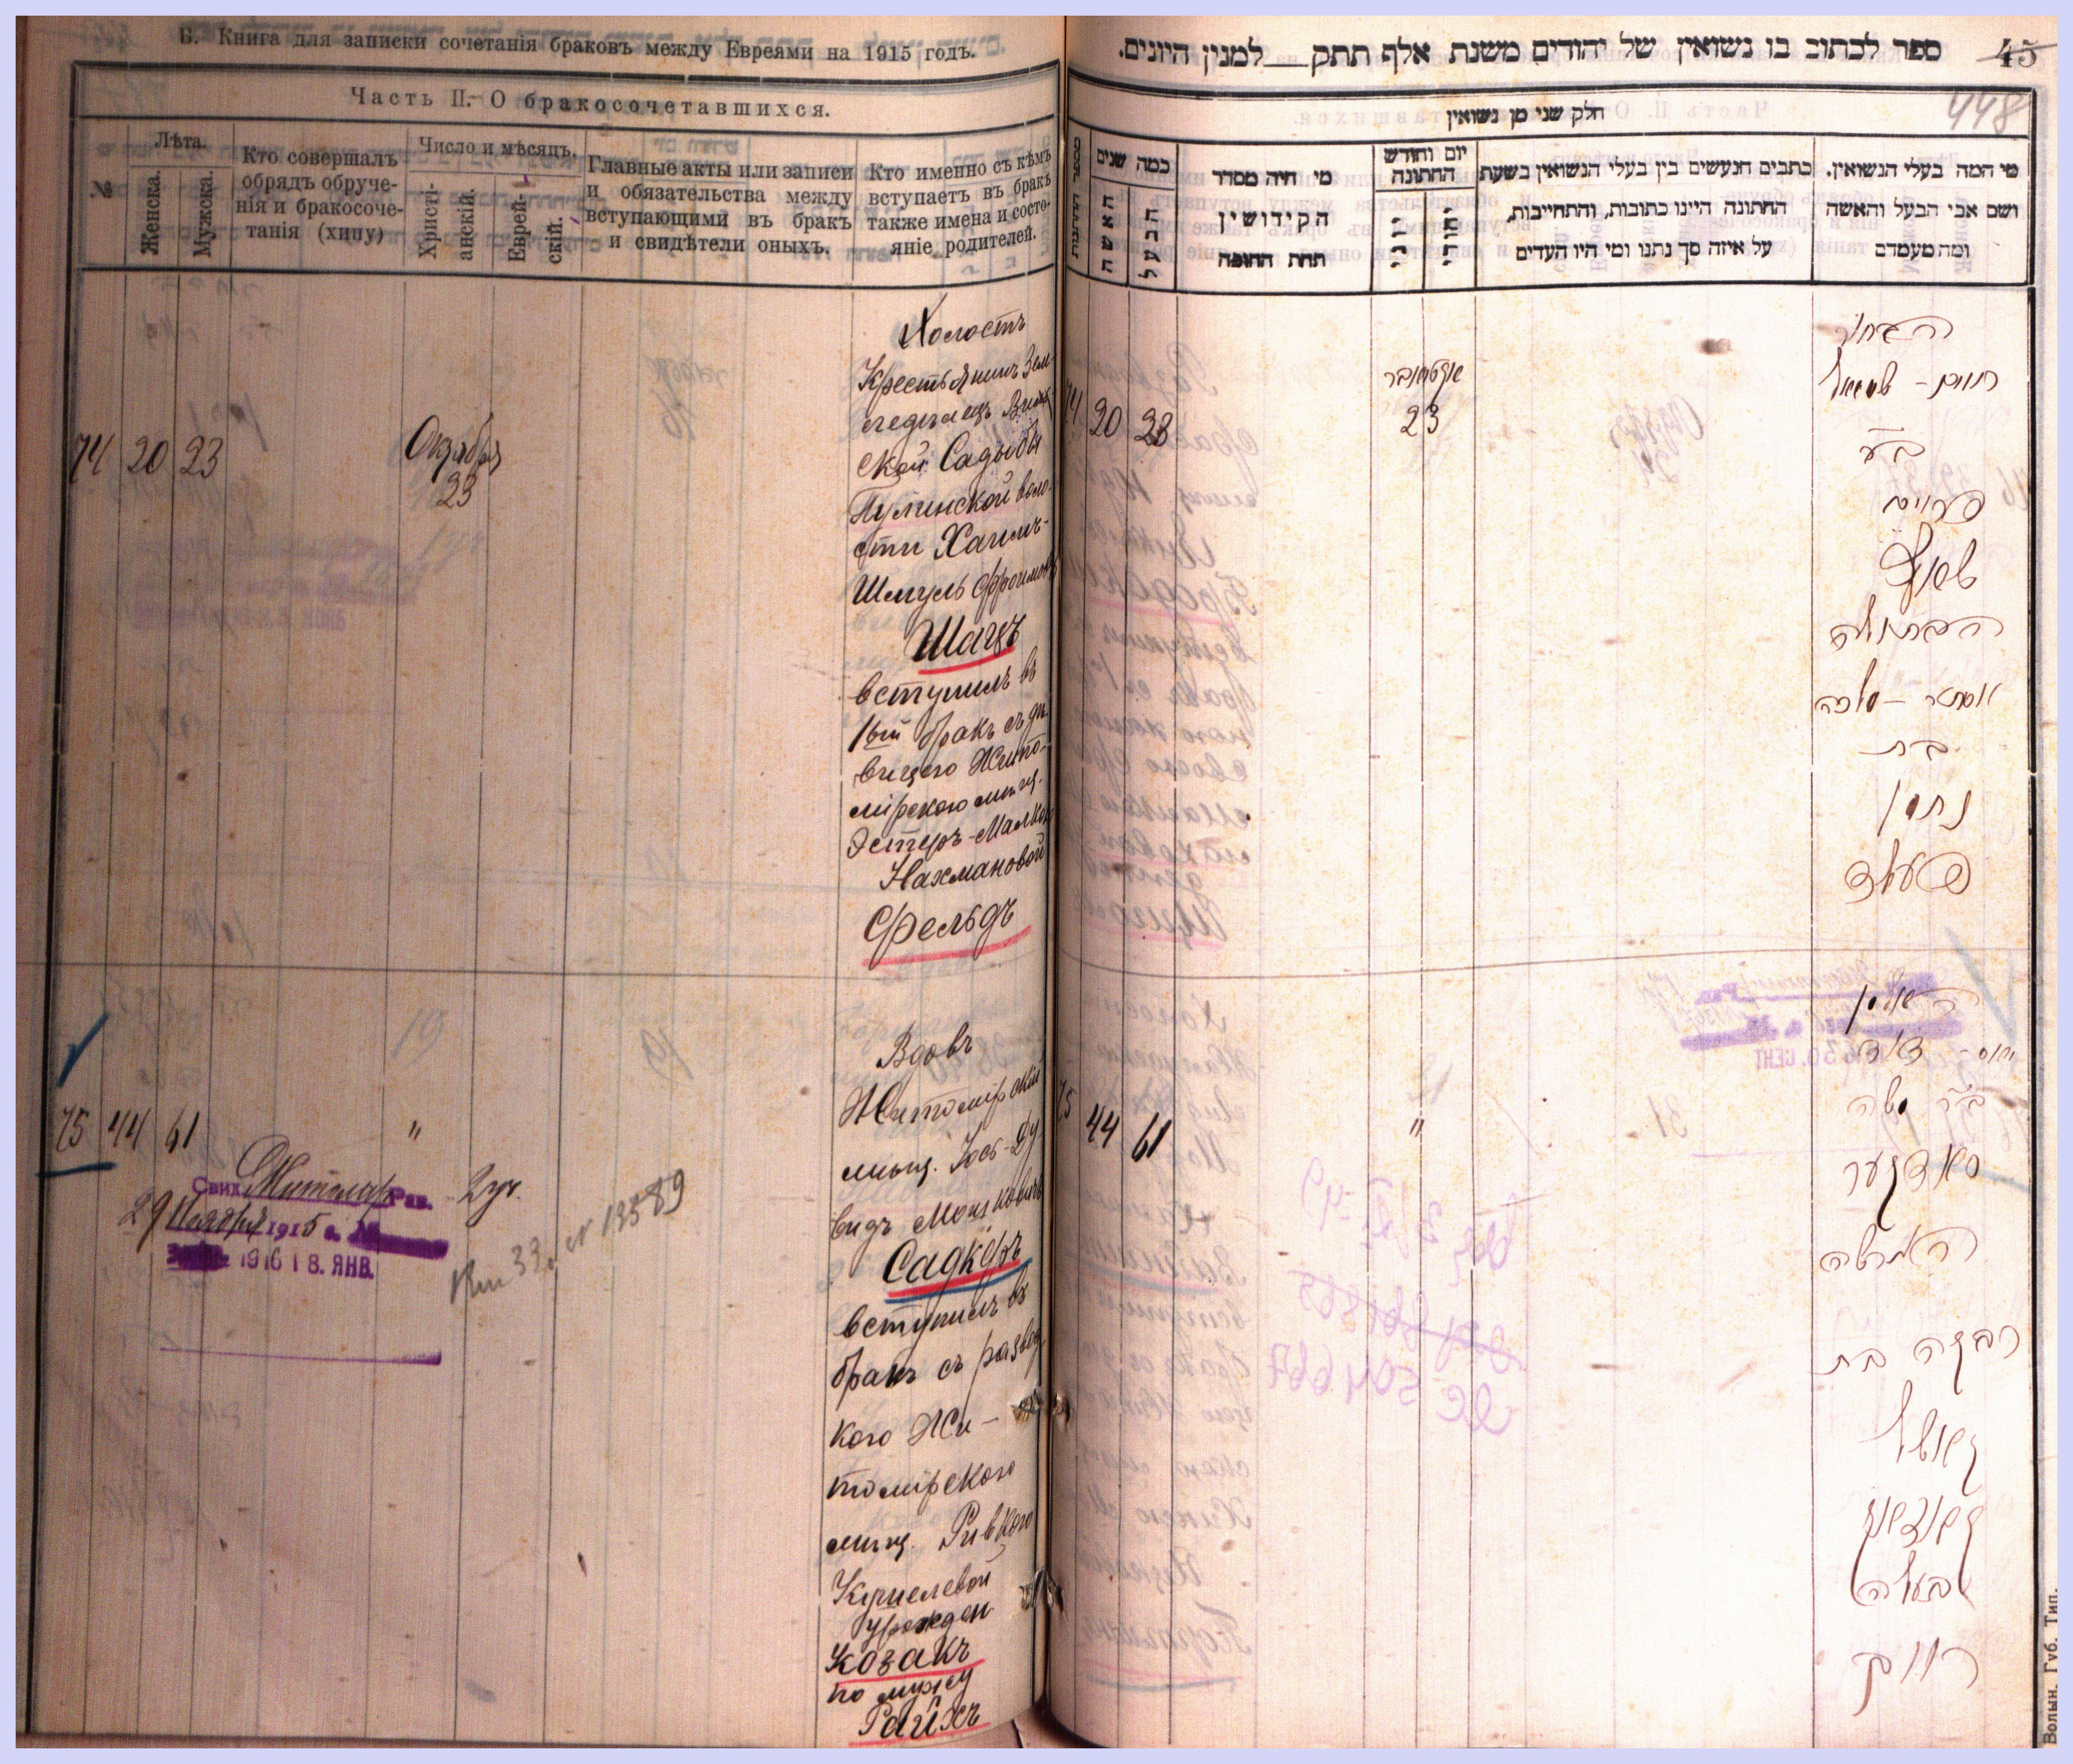 Б. Книга для записки сочетанія браковъ между Евреями на 1915 годъ.
Часть II. О бракосочетавшихся.
№
Лѣта.
Женска.
Мужска.
Кто совершалъ
обрядъ обруче-
нія и бракосоче-
танія (хипу)
Число и мѣсяцъ.
Христі-
анскій.
Еврей-
скій.
Главные акты или записи
и обязательства между
вступающими въ бракъ
и свидѣтели оныхъ.
Кто именно съ кѣмъ
вступаетъ въ бракъ
также имена и состо-
яніе родителей.
74 20 23
Октября
23
Холостъ
Крестьянинъ Зем-
ской Садыбы
Пулинской воло-
сти Хаимъ-
Шмуль Фроимовъ
Шацъ
вступилъ въ
1ый бракъ съ дѣ-
вицею Жито-
мірскою мѣщ.
Эстеръ-Малкою
Нахмановой
Фельдъ
75 44 61
"
Свид. Житомір Рав.
29 Ноября 1915 г.
1916 18. ЯНВ.
№ 13589
Вдовъ
Житомірскій
мѣщ. Іось-Ду-
видъ Мошковичъ
Садкеръ
вступилъ въ
бракъ съ развед
кою Жи-
томірскою
мѣщ. Ривкою
Кушелевой
урожден
Козакъ
по мужу
Райхъ
ספר לכתוב בו נשואין של יהודים משנת אלף תתק__למנין היונים.
45
448
חלק שני מן נשואין
כמה שנים
האשה
הבעל
מי היה מסדר
הקידושין
תחת החופה
יום וחודש
החתונה
יוני
יהודי
כתבים הנעשים בין בעלי הנשואין בשעת
החתונה היינו כתובות, והתחייבות,
על איזה סך נתנו ומי היו העדים
מי המה בעלי הנשואין.
ושם אבי הבעל והאשה
ומה מעמדם
74 20 23
אקטאבר
23
הבחור
חיים - שמואל
ב״ע
פרוים
שאץ
הבתולה
אסתר - מלכה
בת
נחמן
פעלד
75 44 61
"
האלמן
יאס - דוד
ב״ר משה
סאדקער
הגרושה
רבקה בת
קושיל
קאזאק
בעלה
רייך
Волын. Губ. Тип.